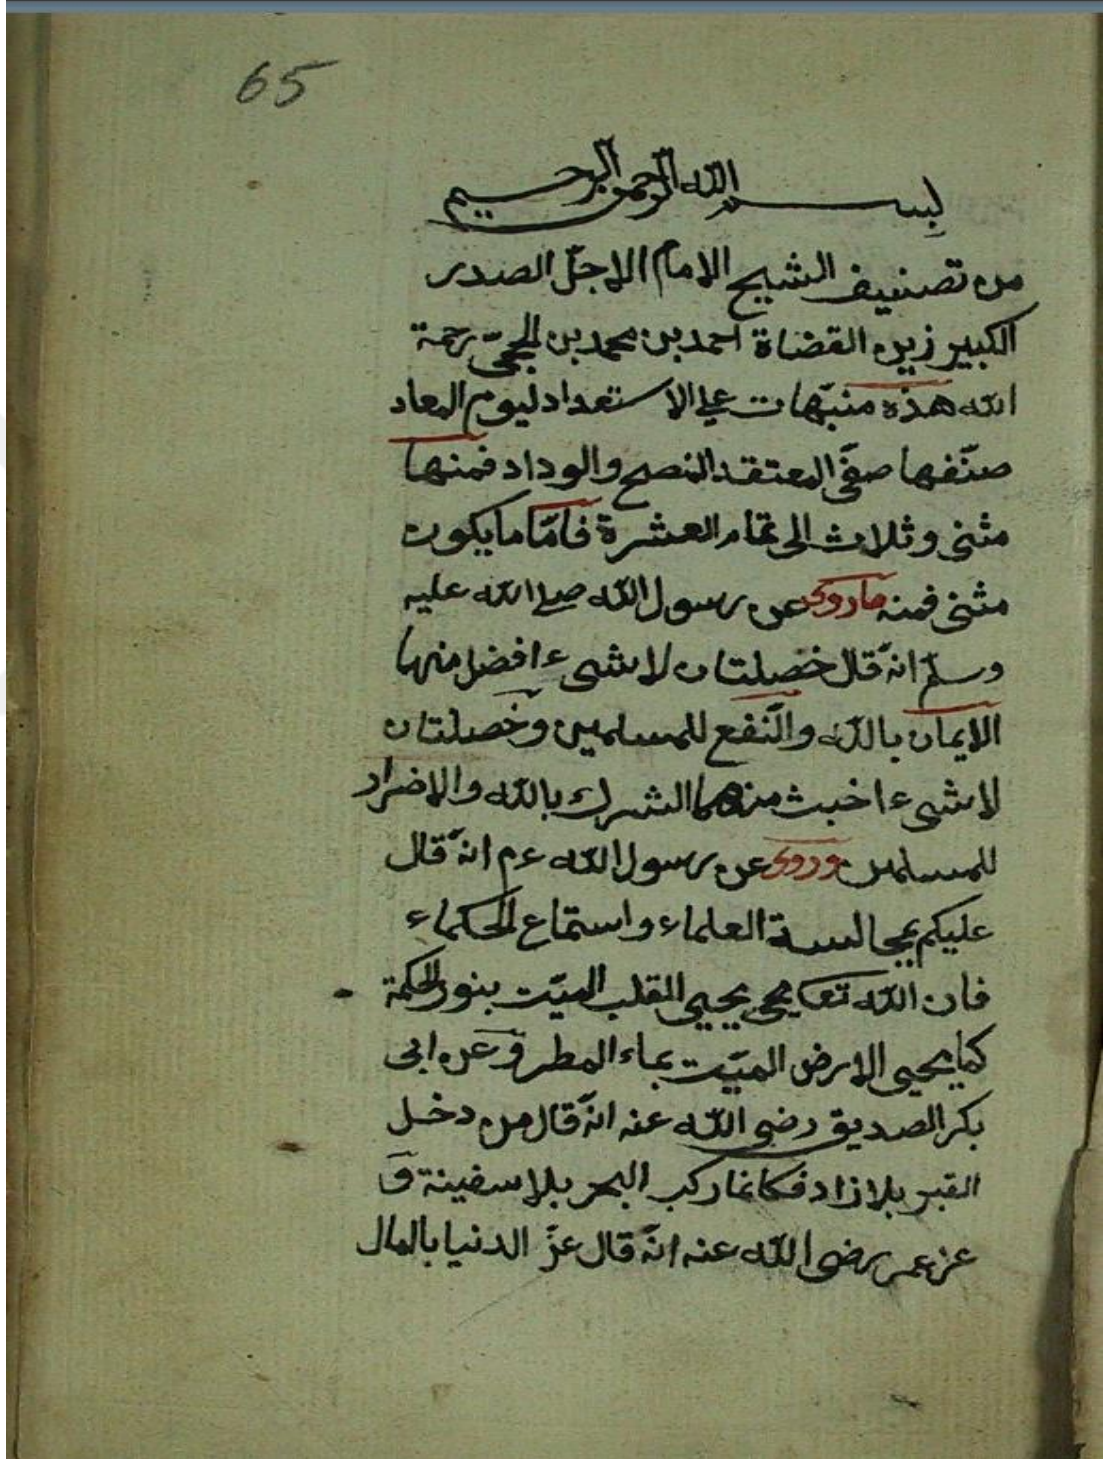 65
بسم الله الرحمن الرحيم
من تصنيف الشيخ الامام الاجلّ الصدر
الكبير زين القضاة احمد بن محمد بن الحجىّ رحمة
الله هذه منبّهات على الاستعداد ليوم المعاد
صنّفها صفىّ المعتقد النصح والوداد فمنها
مثنى وثلاث الى تمام العشرة فامّا ما يكون
مثنى فمنه ماروى عن رسول الله صلى الله عليه
وسلّم انّه قال خصلتان لا شىء افضل منها
الايمان بالله والنّفع للمسلمين وخصلتان
لا شىء اخبث منهما الشرك بالله والاضراد
للمسلمين وروى عن رسول الله عم انّه قال
عليكم بمجالسة العلماء واستماع الحكماء
فان الله تعا يحى يحيى القلب الميّت بنور الحكمة
كما يحيى الارض الميّت بماء المطر وَ عن ابى
بكر الصديق رضى الله عنه انّه قال من دخل
القبر بلا زاد فكانما ركب البحر بلا سفينة وَ
عن عمر رضى الله عنه انّه قال عزّ الدنيا بالمال